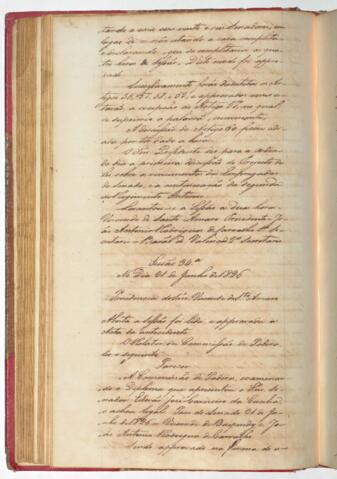 tando a
lugar de não estando a
e declarando, que se completaria a
ta hora da Sessão. Deste modo foi appro-
vado.
Successivamente forão discutidos os Ar-
tigos 56, 57, 58, e 59, e approvados
a excepção do Artigo 58, no qual
se suprimio a palavra
A discussão do Artigo 60 ficou adi-
ada por ter dado a hora.
O Snr. Presidente deu para a ordem
do dia a primeira discussão do Projecto de
Lei sobre os vencimentos dos Empregados
do Senado, e a continuação da segunda
do Regimento interno.
Levantou-se a Sessão ás duas horas
Visconde de Santo Amaro Presidente = Jo-
ão Antonio Rodrigues de Carvalho 1º Se-
cretario = Barão de Valença 2º Secretario
Sessão 34.ª
No Dia 21 de Junho de 1826
Presidencia do Snr. Visconde de Sto. Amaro
Aberta a Sessão foi lida, e approvada a
Acta da antecedente.
O Relator da Commissão de Podéres
leo o seguinte
Parecer
A Commissão de Podéres, examinan-
do o Diploma que apresentou o Snr. Se-
nador Estevão José Carneiro da Cunha,
o achou legal. Paço do Senado 21 de Ju-
nho de 1826 = Visconde de Baependy = Jo-
ão Antonio Rodrigues de Carvalho.
Sendo approvado na forma do